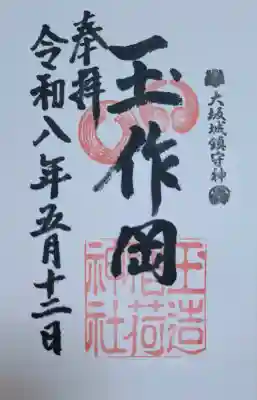 大坂城鎮守神
玉作岡
玉造
稲荷
神社
奉拝
令和八年五月十二日